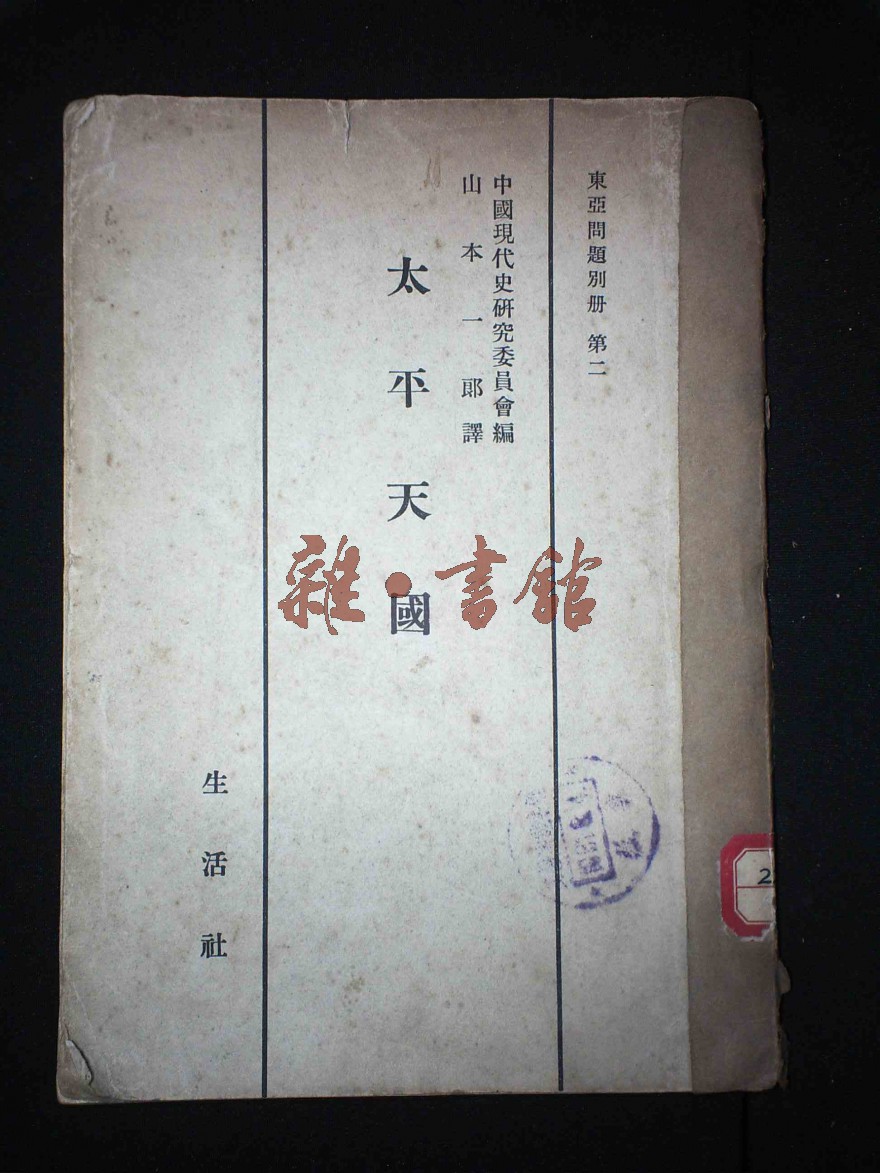 東亞問題別册 第二
中國現代史硏究委員會編
山本一郎譯
太平天國
生活社
雜·書館
2